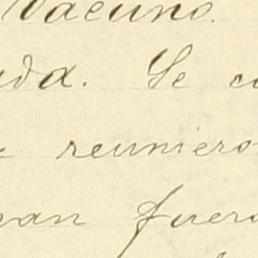 Vacuno.
da. Se co
reuniero
van fuero